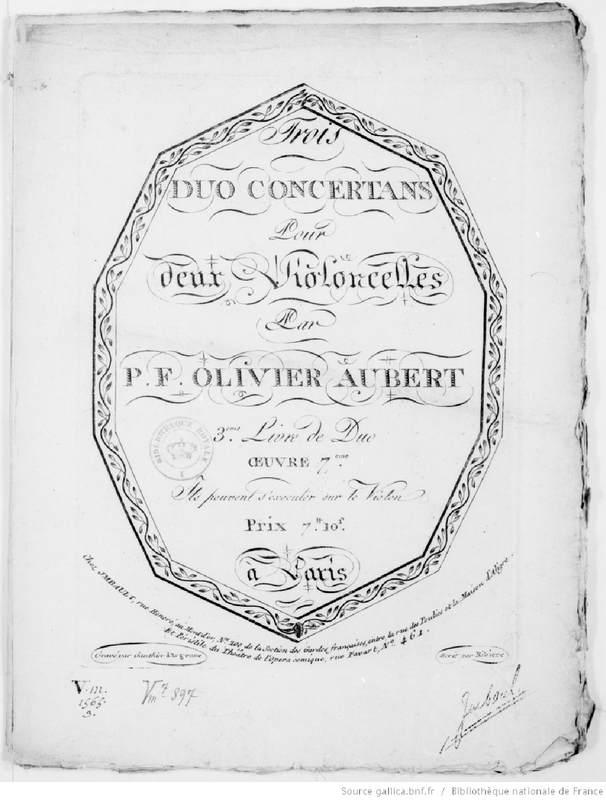 Trois
DUO CONCERTANS
Pour
deux Violoncelles
Par
P. F. OLIVIER AUBERT
3.eme Livre de Duo
ŒUVRE 7.eme
BIBLIOTHEQUE ROYALE
Ils peuvent s'executer sur le Violon
Prix 7.# 10.s
à Paris
Chez IMBAULT, rue Honoré, au Mont d'or, N.o 200, de la Section des Gardes françaises, entre la rue des Poulies et la Maison d'Aligre.
Et Péristile du Théâtre de l'Opera comique, rue Favart, N.o 461.
Gravé par
Ecrit par Ribiere
V.m.
1565
9.
Vm7. 897
Source gallica.bnf.fr / Bibliothèque nationale de France